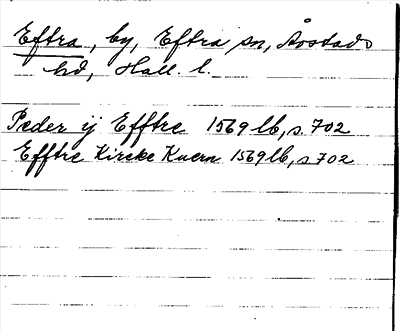 Eftra, by, Eftra sn, Årstads
hd, Hall. l.
Peder ij Efftre 1569 lb, s. 702
Efftre Kircke Kuern 1569 lb, s 702